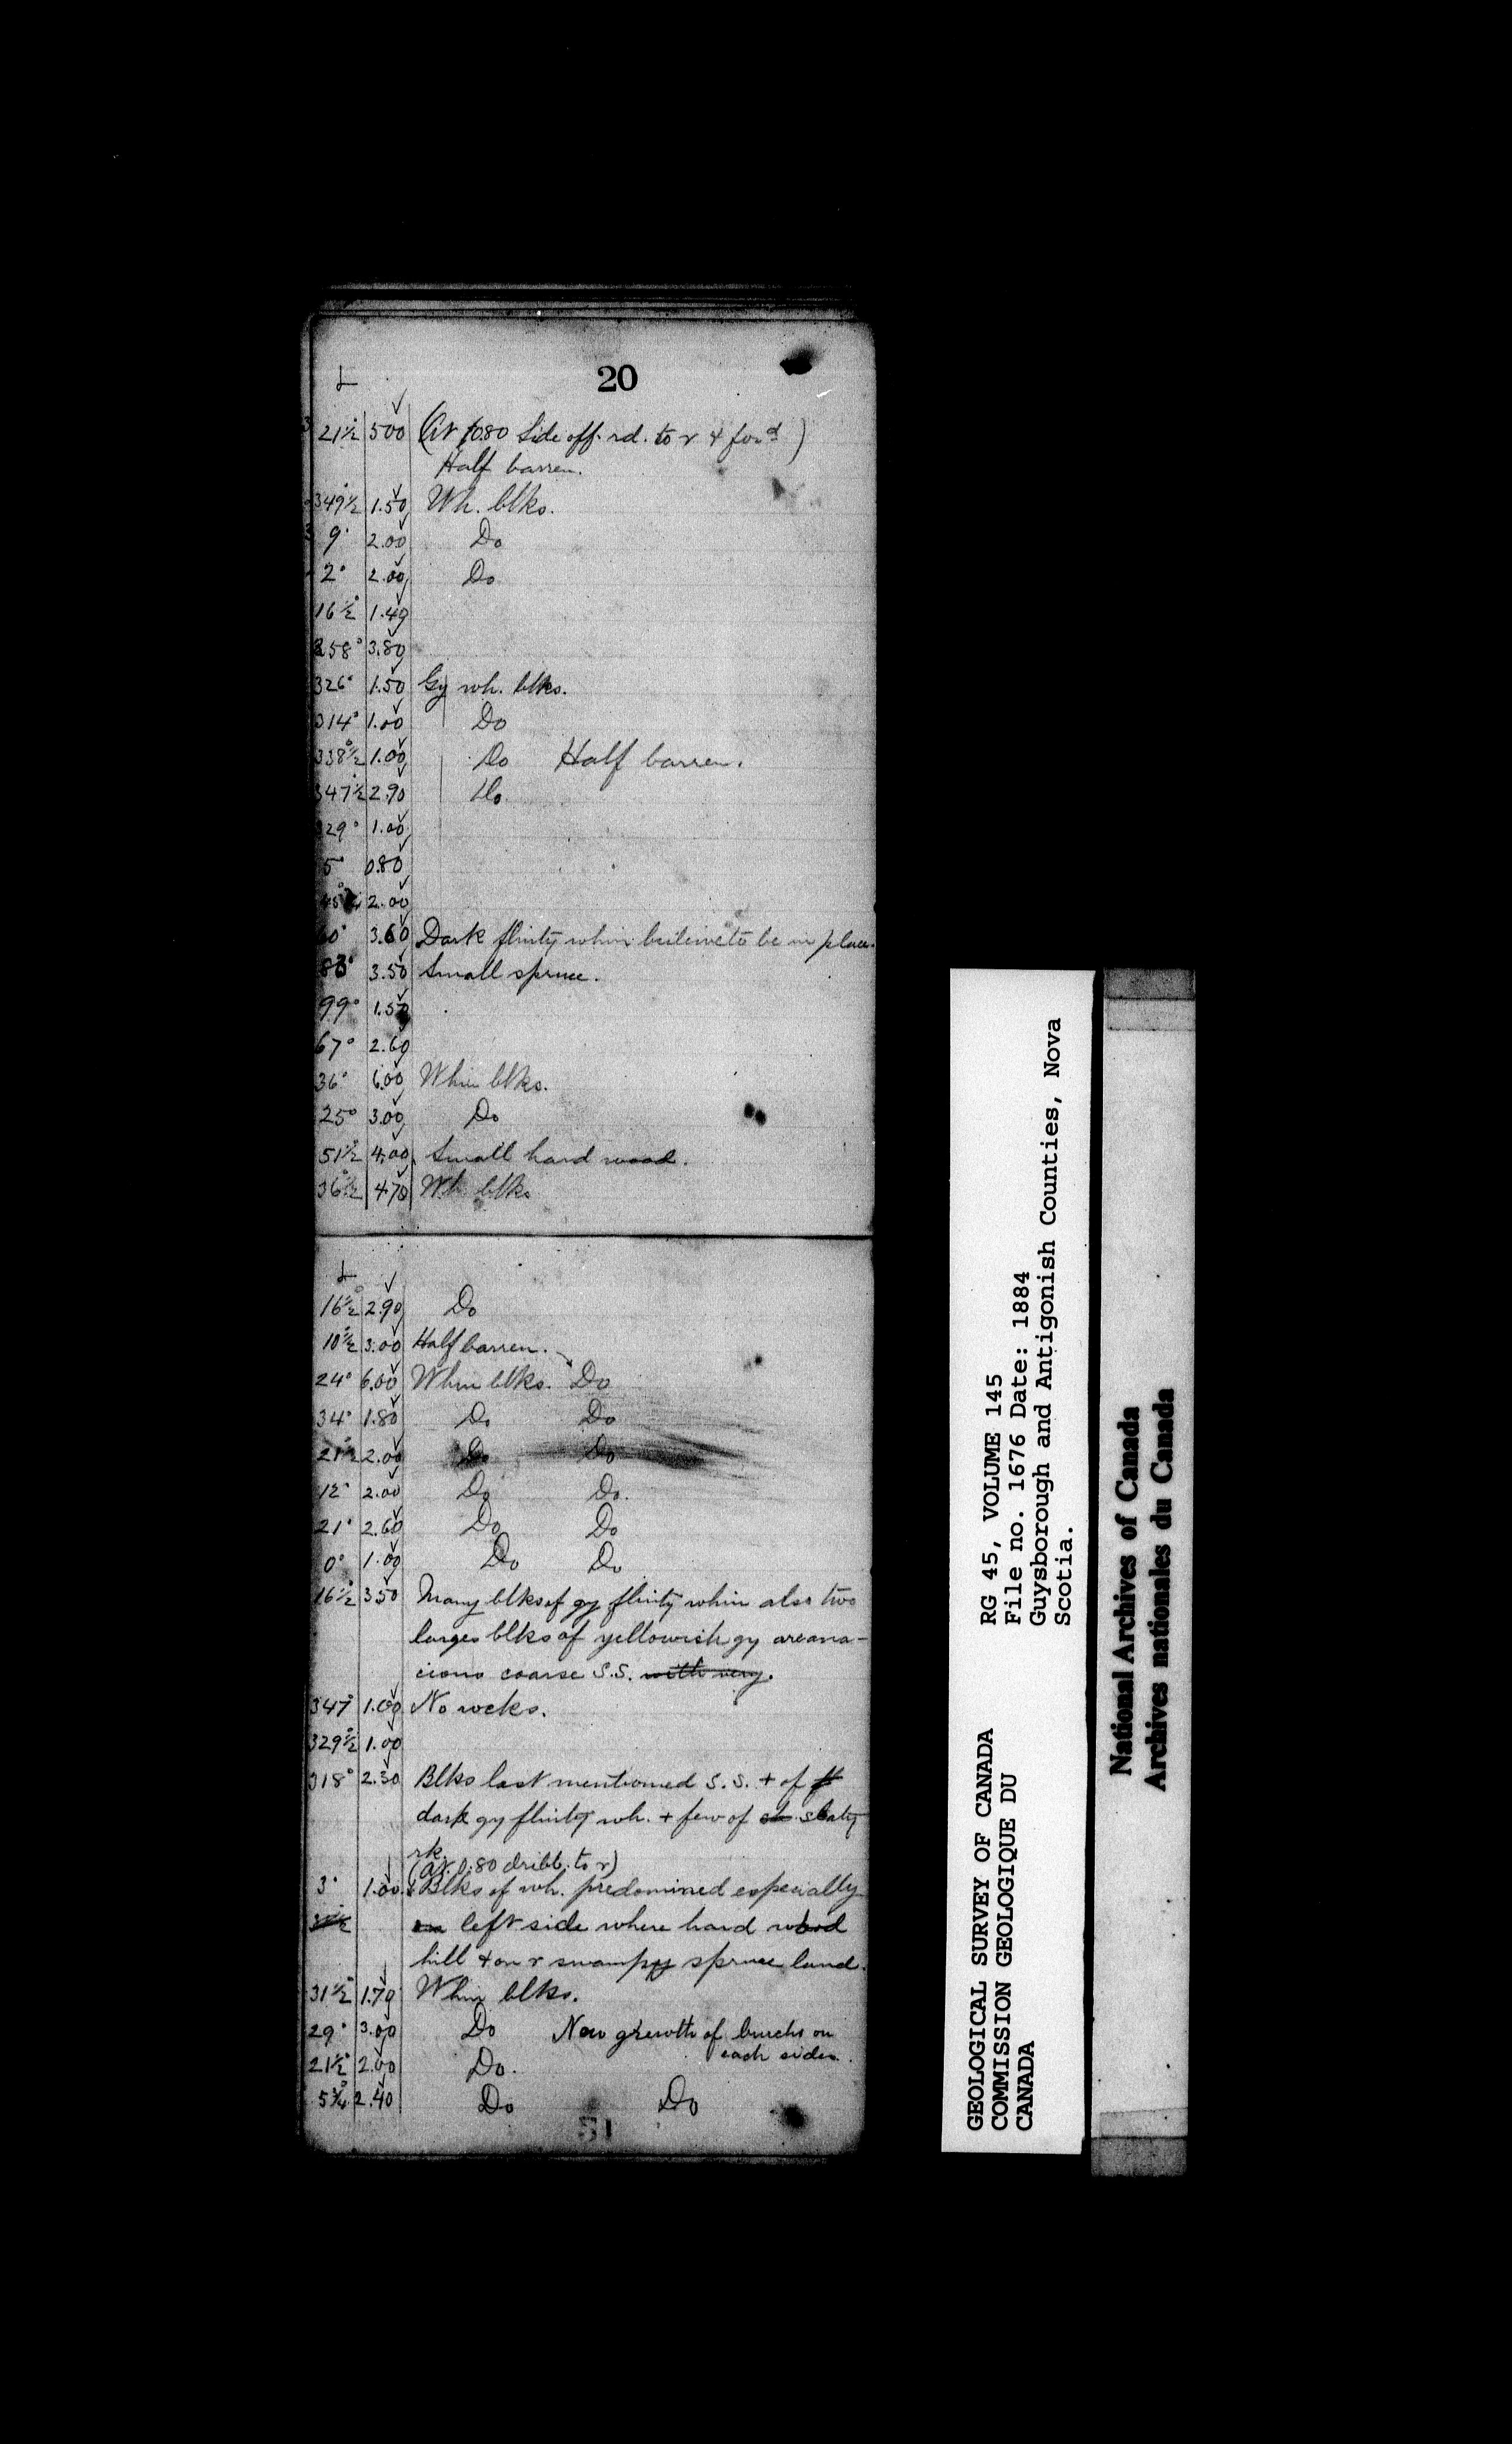 20
21½° 5.00 (At 0.80 Side off. rd. to r & for^d)
Half barren.
349½° 1.50 Wh. blks.
9° 2.00 Do
2° 2.00 Do
16½° 1.40
358° 3.80
326° 1.50 Gy wh. blks.
314° 1.00 Do
338½° 1.00 Do Half barren.
347½° 2.90 Do
329° 1.00
5° 0.80
2.00
60° 3.60 Dark flinty whin beileive to be in place.
3.50 Small spruce.
99° 1.50
67° 2.60
36° 6.00 Whin blks.
25° 3.00 Do
51½° 4.00 Small hard wood.
36½° 4.70 Wh. blks
16½° 2.90 Do
10½° 3.00 Half barren.
24° 6.00 Whin blks. Do
34° 1.80 Do Do
21½° 2.00 Do Do
12° 2.00 Do Do.
21° 2.60 Do Do
0° 1.00 Do Do
16½° 3.50 Many blks of gy flinty whin also two
larges blks of yellowish gy arena-
cious coarse S.S. with very.
347° 1.00 No rocks.
329½° 1.00
318° 2.30 Blks last mentioned S.S. + of fl
dark gy flinty wh. + few of sl slaty
rk.
(At 0.80 dribb. to r)
3° 1.00 Blks of wh. predomined especially
on left side where hard wood
hill + on r swampy spruce land.
31½° 1.70 Whin blks.
29° 3.00 Do New growth of burchs on
each sides.
21½° 2.00 Do.
5¾° 2.40 Do Do
GEOLOGICAL SURVEY OF CANADA
COMMISSION GEOLOGIQUE DU
CANADA
RG 45, VOLUME 145
File no. 1676 Date: 1884
Guysborough and Antigonish Counties, Nova
Scotia.
National Archives of Canada
Archives nationales du Canada